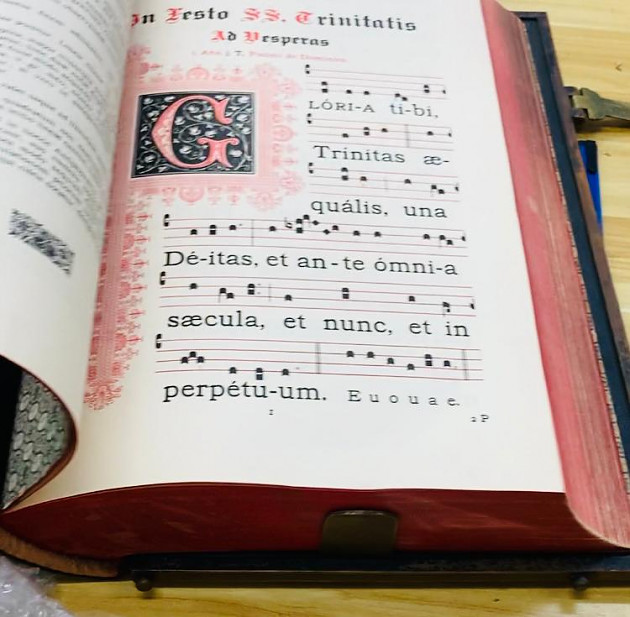 In Festo SS. Trinitatis
Ad Vesperas
GLÓRI-A ti-bi,
Trinitas æ-
quális, una
Dé-itas, et an-te ómni-a
sæcula, et nunc, et in
perpétu-um. E u o u a e.
2 P